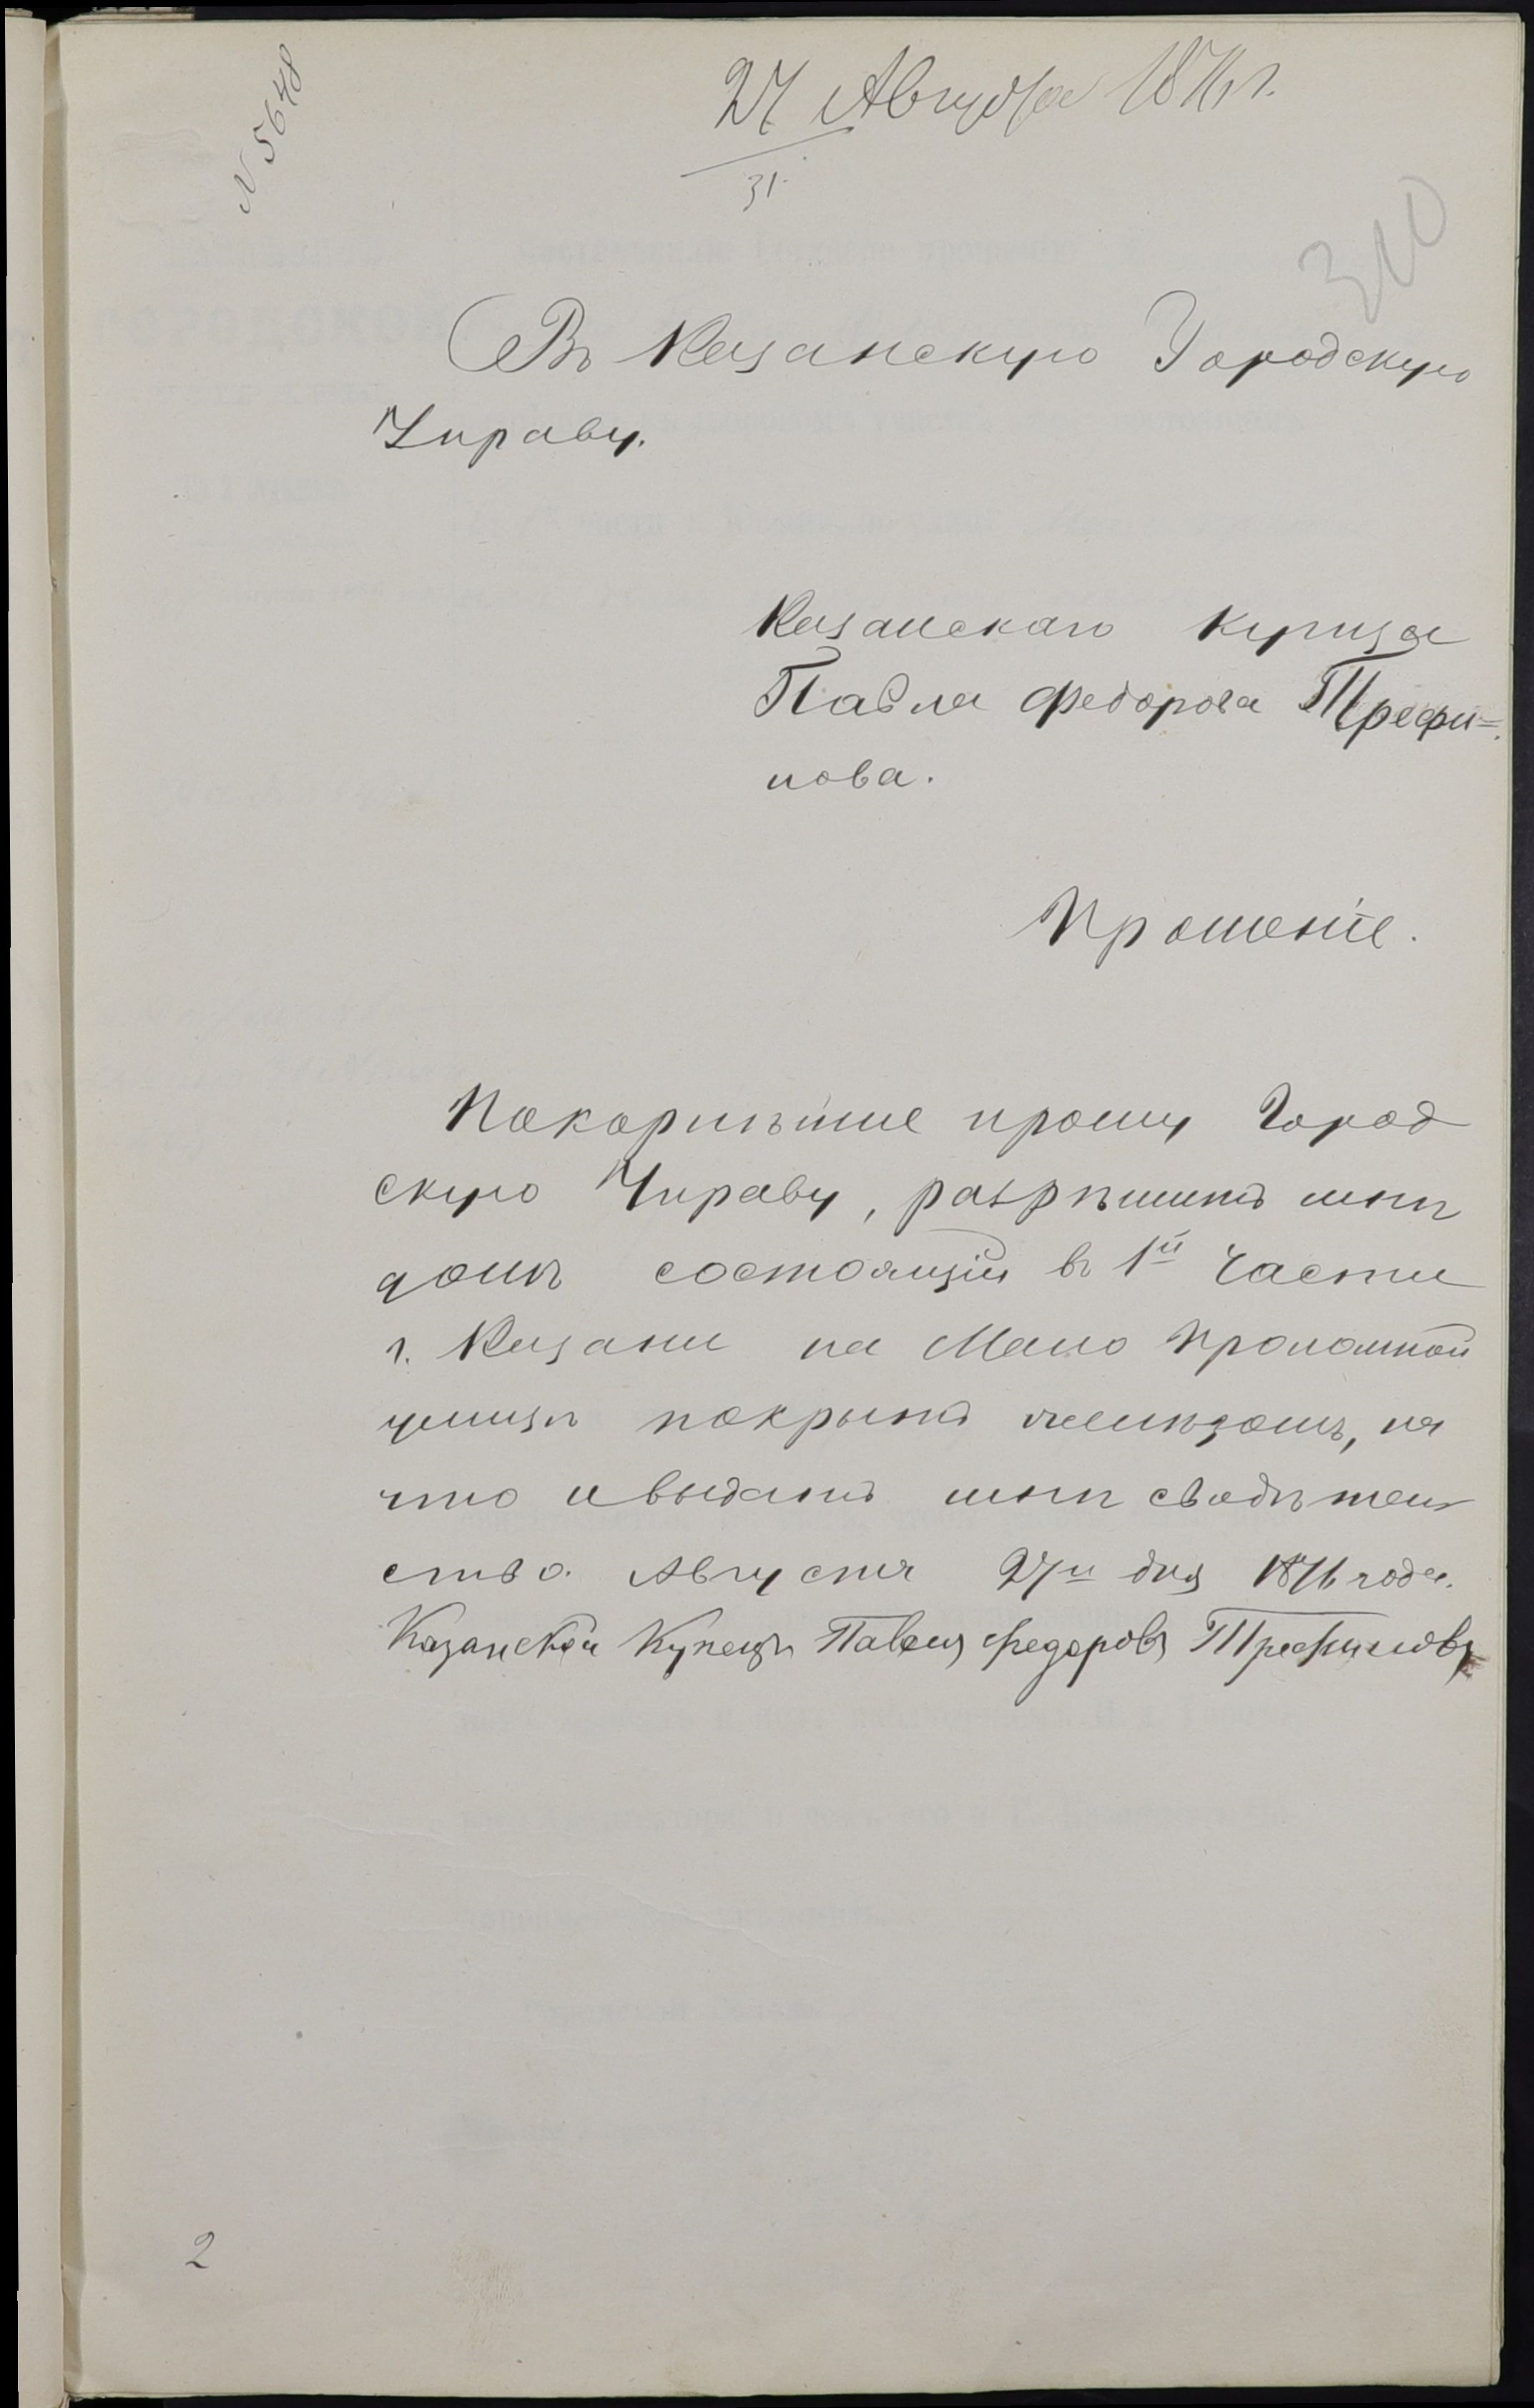 N 5648
27 Августа 1871 г.
31.
310
Въ Казанскую Городскую
Управу.
Казанскаго купца
Павла Федорова Трефи=
нова.
Прошеніе.
Покорнѣйше прошу Город
скую Управу, разрѣшить мнѣ
домъ состоящій въ 1й части
г. Казани на Мало Проломной
улицѣ покрыть желѣзомъ, на
что и выдать мнѣ свидѣтель
ство. Августа 27 дня года.
Казанской Купецъ Павелъ Федоровъ Трефиловъ
2